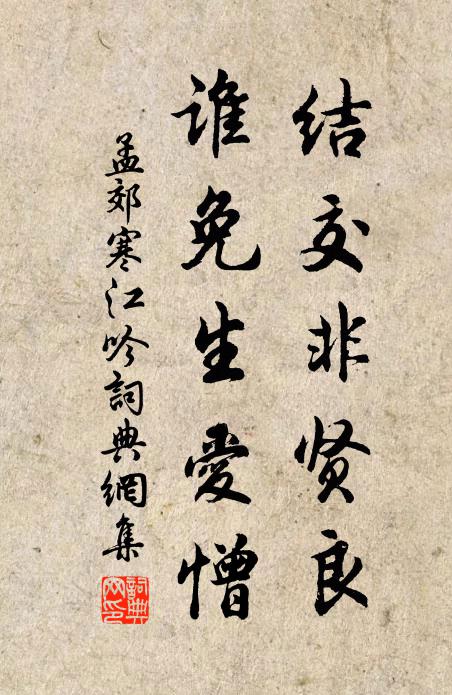 结交非贤良
谁免生愛憎
孟郊寒江吟詞典網集
詞典網印